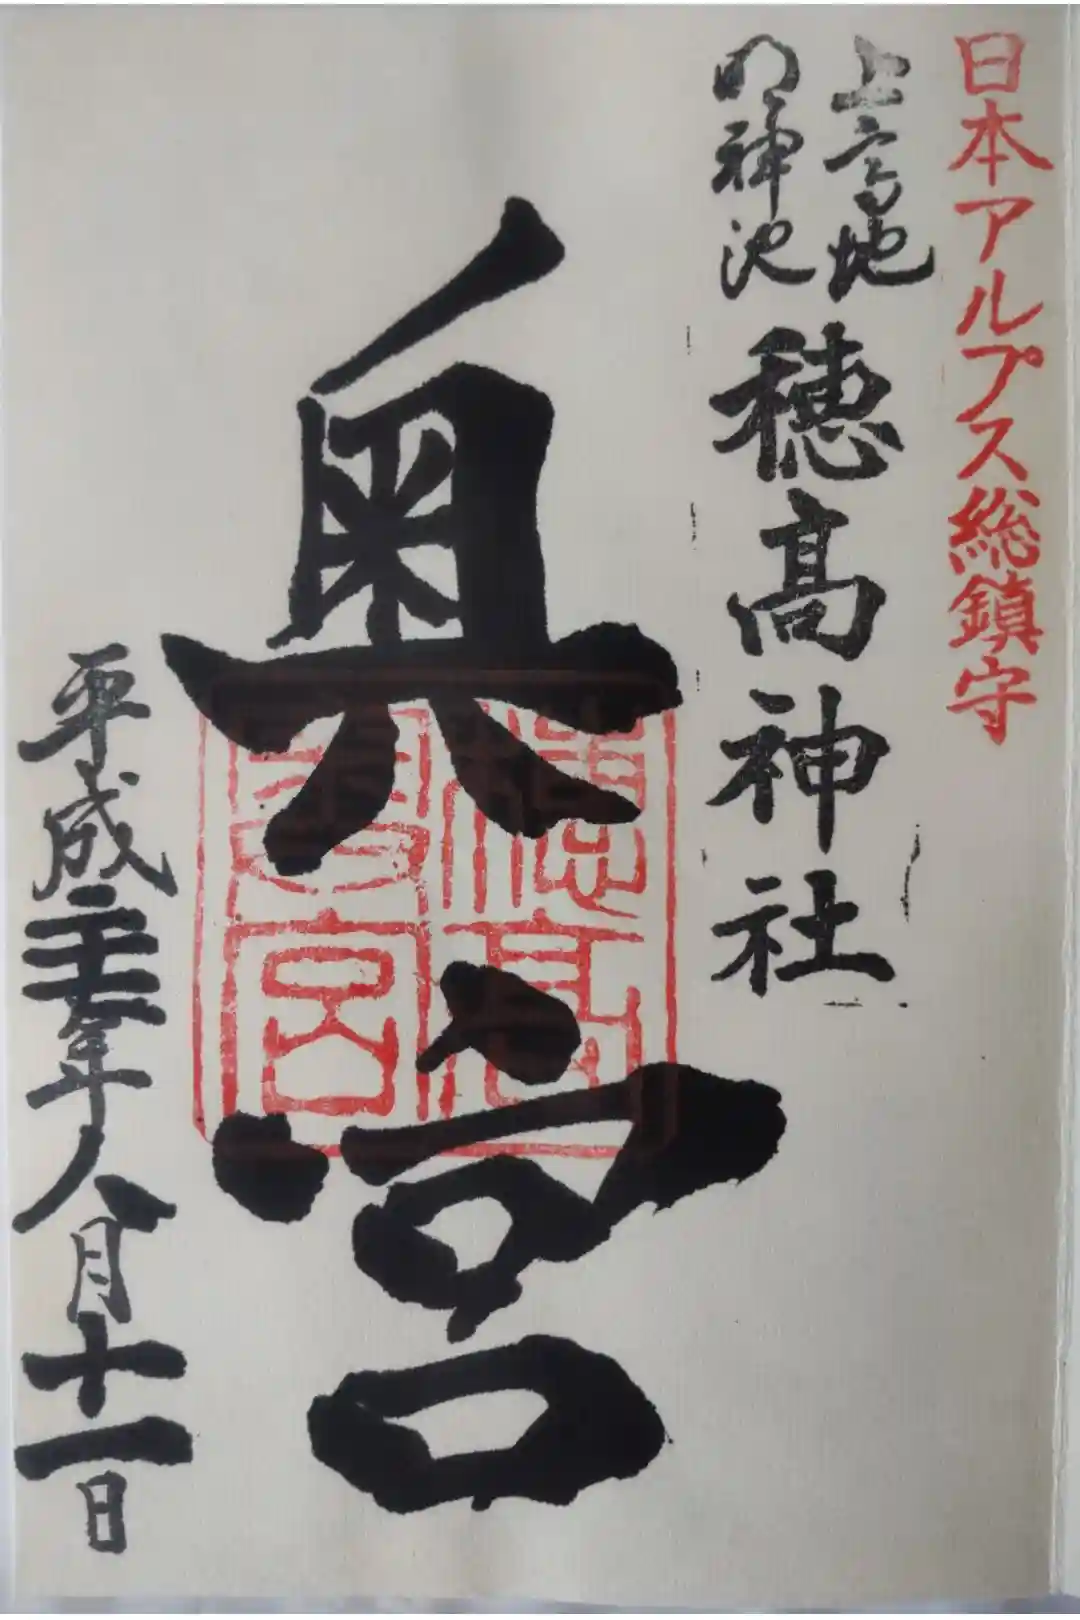 日本アルプス総鎮守
上高地
明神池
穂高神社
奥宮
穂高
宮
平成
年八月十一日